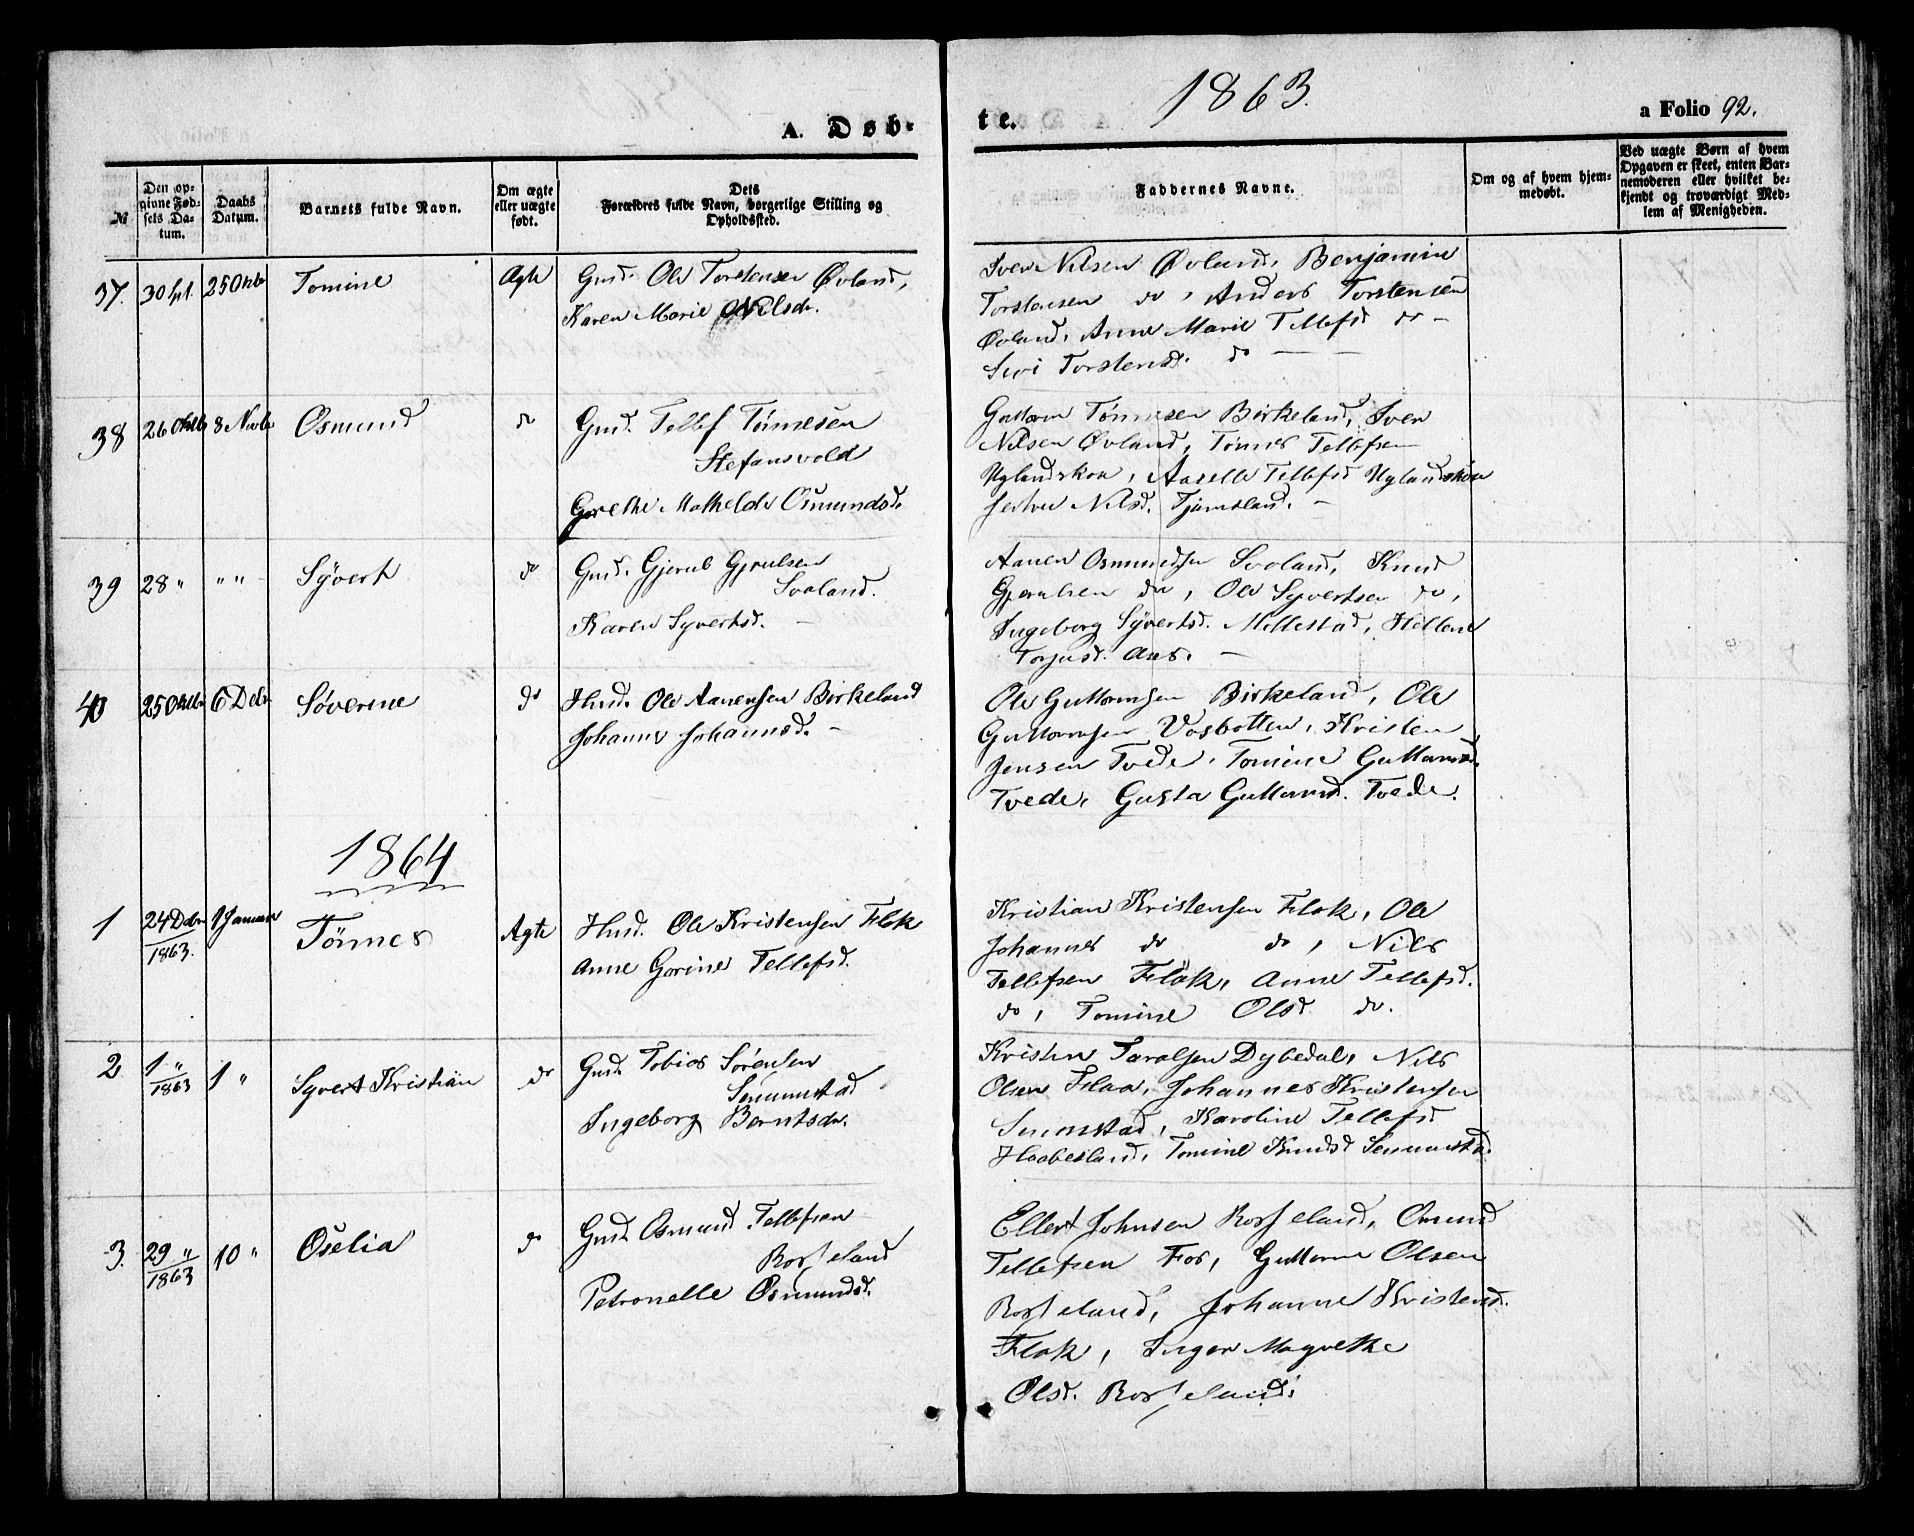 1863.
A. Døb-
te.
a Folio 92.
№
Den opgivne Fødsels Datum.
Daabs Datum.
Barnets fulde Navn.
Om ægte eller uægte født.
Dets Forældres fulde Navn, borgerlige Stilling og Opholdssted.
Faddernes Navne.
Om og af hvem hjemmedøbt.
Ved uægte Børn af hvem Opgaven er skeet, enten Barnemoderen eller hvilket bekjendt og troværdigt Medlem af Menigheden.
37. 30 Spt. 25 Oktb Tomine Ægte Gmd. Ole Torstensen Øvland,
Karen Marie Nilsdr.
Sven Nilsen Øvland, Benjamin
Torstensen do, Anders Torstensen
Øvland, Anne Marie Tellefsd do -
Sivi Torstensd. do - -
38 26 Oktb 8 Novbr Osmund do Gmd. Tellef Tønnesen
Stefansvold
Grethe Mathilde Osmundsd.
Guttorm Tønnesen Birkeland, Sven
Nilsen Øvland, Tønnes Tellefsen
Uglandskoa, Aaselle Tellefsd Uglandskoa
Nilsd. Tjomsland. -
39 28 " " " Syvert do Gmd. Gjerul Gjerulsen
Svaland.
Karen Syvertsd. -
Aanen Osmundsen Svaland, Knud
Gjerulsen do, Ole Syvertsen do,
Ingeborg Syvertsd. Millestad, Hellene
Torjusd. Aas. -
40 25 Oktbr 6 Debr Søverine do Husd. Ole Aanensen Birkeland
Johanne Johannsd. -
Ole Guttormsen Birkeland, Ole
Guttormsen Vasbotten, Kristen
Jensen Tvede, Tomine Guttormsd.
Tvede, Gusta Guttormsd. Tvede.
1864
1 24 Debr 1863. 1 Januar Tønnes Ægte Husd. Ole Kristensen Flak
Anne Gorine Tellefsd.
Kristian Kristensen Flak, Ole
Johannes do do, Nils
Tellefsen Flak, Anne Tellefsd.
do, Tomine Olsd do.
2. 1 " 1863 1 " Syvert Kristian do Gmd. Tobias Sørensen
Senumstad
Ingeborg Berntsdr.
Kristen Taralsen Dybedal, Nils
Olsen Flaa, Johannes Kristensen
Senumstad, Karoline Tellefsd
Haabesland, Tomine Knudsd Senumstad.
3. 29 " 1863 10 " Oselia do Gmd. Osmund Tellefsen
Rosseland
Petronelle Osmundsd.
Ellert Johnsen Rosseland, Omund
Tellefsen Fos, Guttorm Olsen
Rosseland, Johanne Kristensd.
Flak, Inger Magrethe
Olsd. Rosseland.